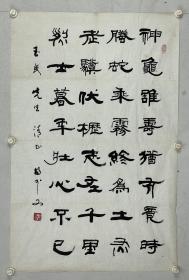 神龜雖壽猶有竟時
騰蛇乘霧終為土灰
老驥伏櫪志在千里
烈士暮年壯心不已
先生